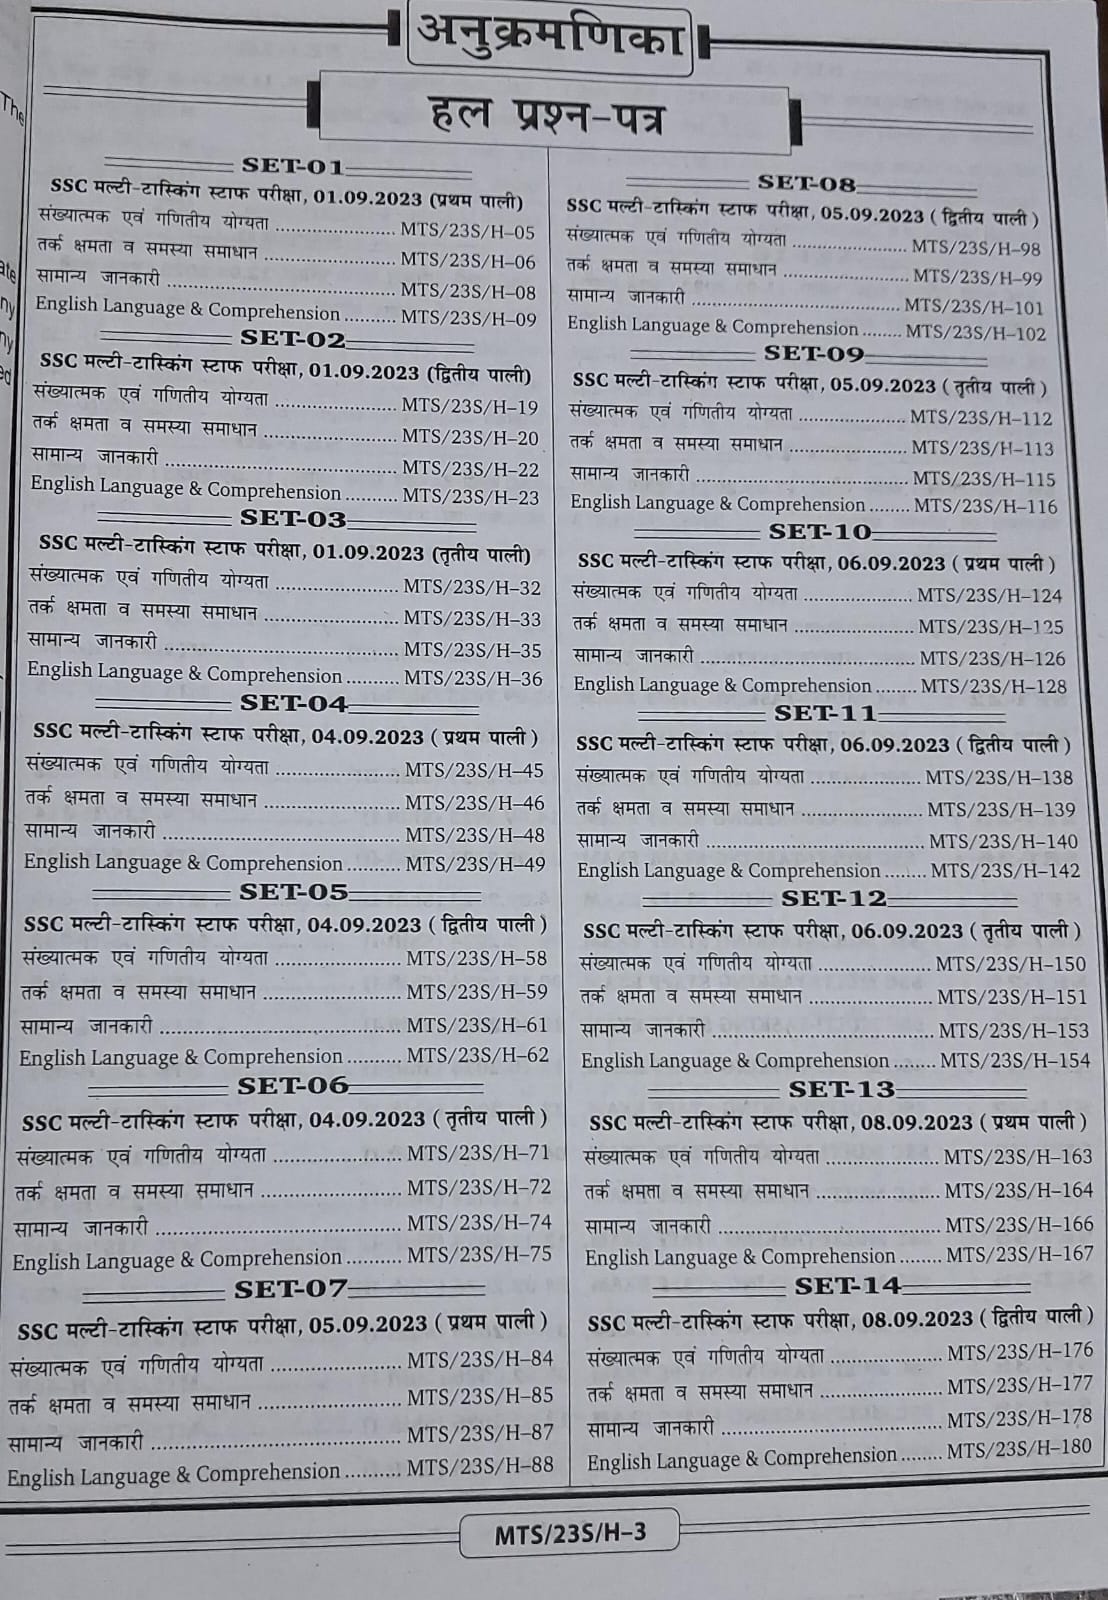 अनुक्रमणिका
हल प्रश्न-पत्र
SET-01
SSC मल्टी-टास्किंग स्टाफ परीक्षा, 01.09.2023 (प्रथम पाली)
संख्यात्मक एवं गणितीय योग्यता ........................ MTS/23S/H–05
तर्क क्षमता व समस्या समाधान .......................... MTS/23S/H–06
सामान्य जानकारी .............................................. MTS/23S/H–08
English Language & Comprehension .......... MTS/23S/H–09
SET-02
SSC मल्टी-टास्किंग स्टाफ परीक्षा, 01.09.2023 (द्वितीय पाली)
संख्यात्मक एवं गणितीय योग्यता ........................ MTS/23S/H–19
तर्क क्षमता व समस्या समाधान .......................... MTS/23S/H–20
सामान्य जानकारी .............................................. MTS/23S/H–22
English Language & Comprehension .......... MTS/23S/H–23
SET-03
SSC मल्टी-टास्किंग स्टाफ परीक्षा, 01.09.2023 (तृतीय पाली)
संख्यात्मक एवं गणितीय योग्यता ........................ MTS/23S/H–32
तर्क क्षमता व समस्या समाधान .......................... MTS/23S/H–33
सामान्य जानकारी .............................................. MTS/23S/H–35
English Language & Comprehension .......... MTS/23S/H–36
SET-04
SSC मल्टी-टास्किंग स्टाफ परीक्षा, 04.09.2023 ( प्रथम पाली )
संख्यात्मक एवं गणितीय योग्यता ........................ MTS/23S/H–45
तर्क क्षमता व समस्या समाधान .......................... MTS/23S/H–46
सामान्य जानकारी .............................................. MTS/23S/H–48
English Language & Comprehension .......... MTS/23S/H–49
SET-05
SSC मल्टी-टास्किंग स्टाफ परीक्षा, 04.09.2023 ( द्वितीय पाली )
संख्यात्मक एवं गणितीय योग्यता ........................ MTS/23S/H–58
तर्क क्षमता व समस्या समाधान .......................... MTS/23S/H–59
सामान्य जानकारी .............................................. MTS/23S/H–61
English Language & Comprehension .......... MTS/23S/H–62
SET-06
SSC मल्टी-टास्किंग स्टाफ परीक्षा, 04.09.2023 ( तृतीय पाली )
संख्यात्मक एवं गणितीय योग्यता ........................ MTS/23S/H–71
तर्क क्षमता व समस्या समाधान .......................... MTS/23S/H–72
सामान्य जानकारी .............................................. MTS/23S/H–74
English Language & Comprehension .......... MTS/23S/H–75
SET-07
SSC मल्टी-टास्किंग स्टाफ परीक्षा, 05.09.2023 ( प्रथम पाली )
संख्यात्मक एवं गणितीय योग्यता ........................ MTS/23S/H–84
तर्क क्षमता व समस्या समाधान .......................... MTS/23S/H–85
सामान्य जानकारी .............................................. MTS/23S/H–87
English Language & Comprehension .......... MTS/23S/H–88
SET-08
SSC मल्टी-टास्किंग स्टाफ परीक्षा, 05.09.2023 ( द्वितीय पाली )
संख्यात्मक एवं गणितीय योग्यता ...................... MTS/23S/H–98
तर्क क्षमता व समस्या समाधान ........................ MTS/23S/H–99
सामान्य जानकारी .......................................... MTS/23S/H–101
English Language & Comprehension ........ MTS/23S/H–102
SET-09
SSC मल्टी-टास्किंग स्टाफ परीक्षा, 05.09.2023 ( तृतीय पाली )
संख्यात्मक एवं गणितीय योग्यता ...................... MTS/23S/H–112
तर्क क्षमता व समस्या समाधान ........................ MTS/23S/H–113
सामान्य जानकारी .......................................... MTS/23S/H–115
English Language & Comprehension ........ MTS/23S/H–116
SET-10
SSC मल्टी-टास्किंग स्टाफ परीक्षा, 06.09.2023 ( प्रथम पाली )
संख्यात्मक एवं गणितीय योग्यता ...................... MTS/23S/H–124
तर्क क्षमता व समस्या समाधान ........................ MTS/23S/H–125
सामान्य जानकारी .......................................... MTS/23S/H–126
English Language & Comprehension ........ MTS/23S/H–128
SET-11
SSC मल्टी-टास्किंग स्टाफ परीक्षा, 06.09.2023 ( द्वितीय पाली )
संख्यात्मक एवं गणितीय योग्यता ...................... MTS/23S/H–138
तर्क क्षमता व समस्या समाधान ........................ MTS/23S/H–139
सामान्य जानकारी .......................................... MTS/23S/H–140
English Language & Comprehension ........ MTS/23S/H–142
SET-12
SSC मल्टी-टास्किंग स्टाफ परीक्षा, 06.09.2023 ( तृतीय पाली )
संख्यात्मक एवं गणितीय योग्यता ...................... MTS/23S/H–150
तर्क क्षमता व समस्या समाधान ........................ MTS/23S/H–151
सामान्य जानकारी .......................................... MTS/23S/H–153
English Language & Comprehension ........ MTS/23S/H–154
SET-13
SSC मल्टी-टास्किंग स्टाफ परीक्षा, 08.09.2023 ( प्रथम पाली )
संख्यात्मक एवं गणितीय योग्यता ...................... MTS/23S/H–163
तर्क क्षमता व समस्या समाधान ........................ MTS/23S/H–164
सामान्य जानकारी .......................................... MTS/23S/H–166
English Language & Comprehension ........ MTS/23S/H–167
SET-14
SSC मल्टी-टास्किंग स्टाफ परीक्षा, 08.09.2023 ( द्वितीय पाली )
संख्यात्मक एवं गणितीय योग्यता ...................... MTS/23S/H–176
तर्क क्षमता व समस्या समाधान ........................ MTS/23S/H–177
सामान्य जानकारी .......................................... MTS/23S/H–178
English Language & Comprehension ........ MTS/23S/H–180
MTS/23S/H–3
The